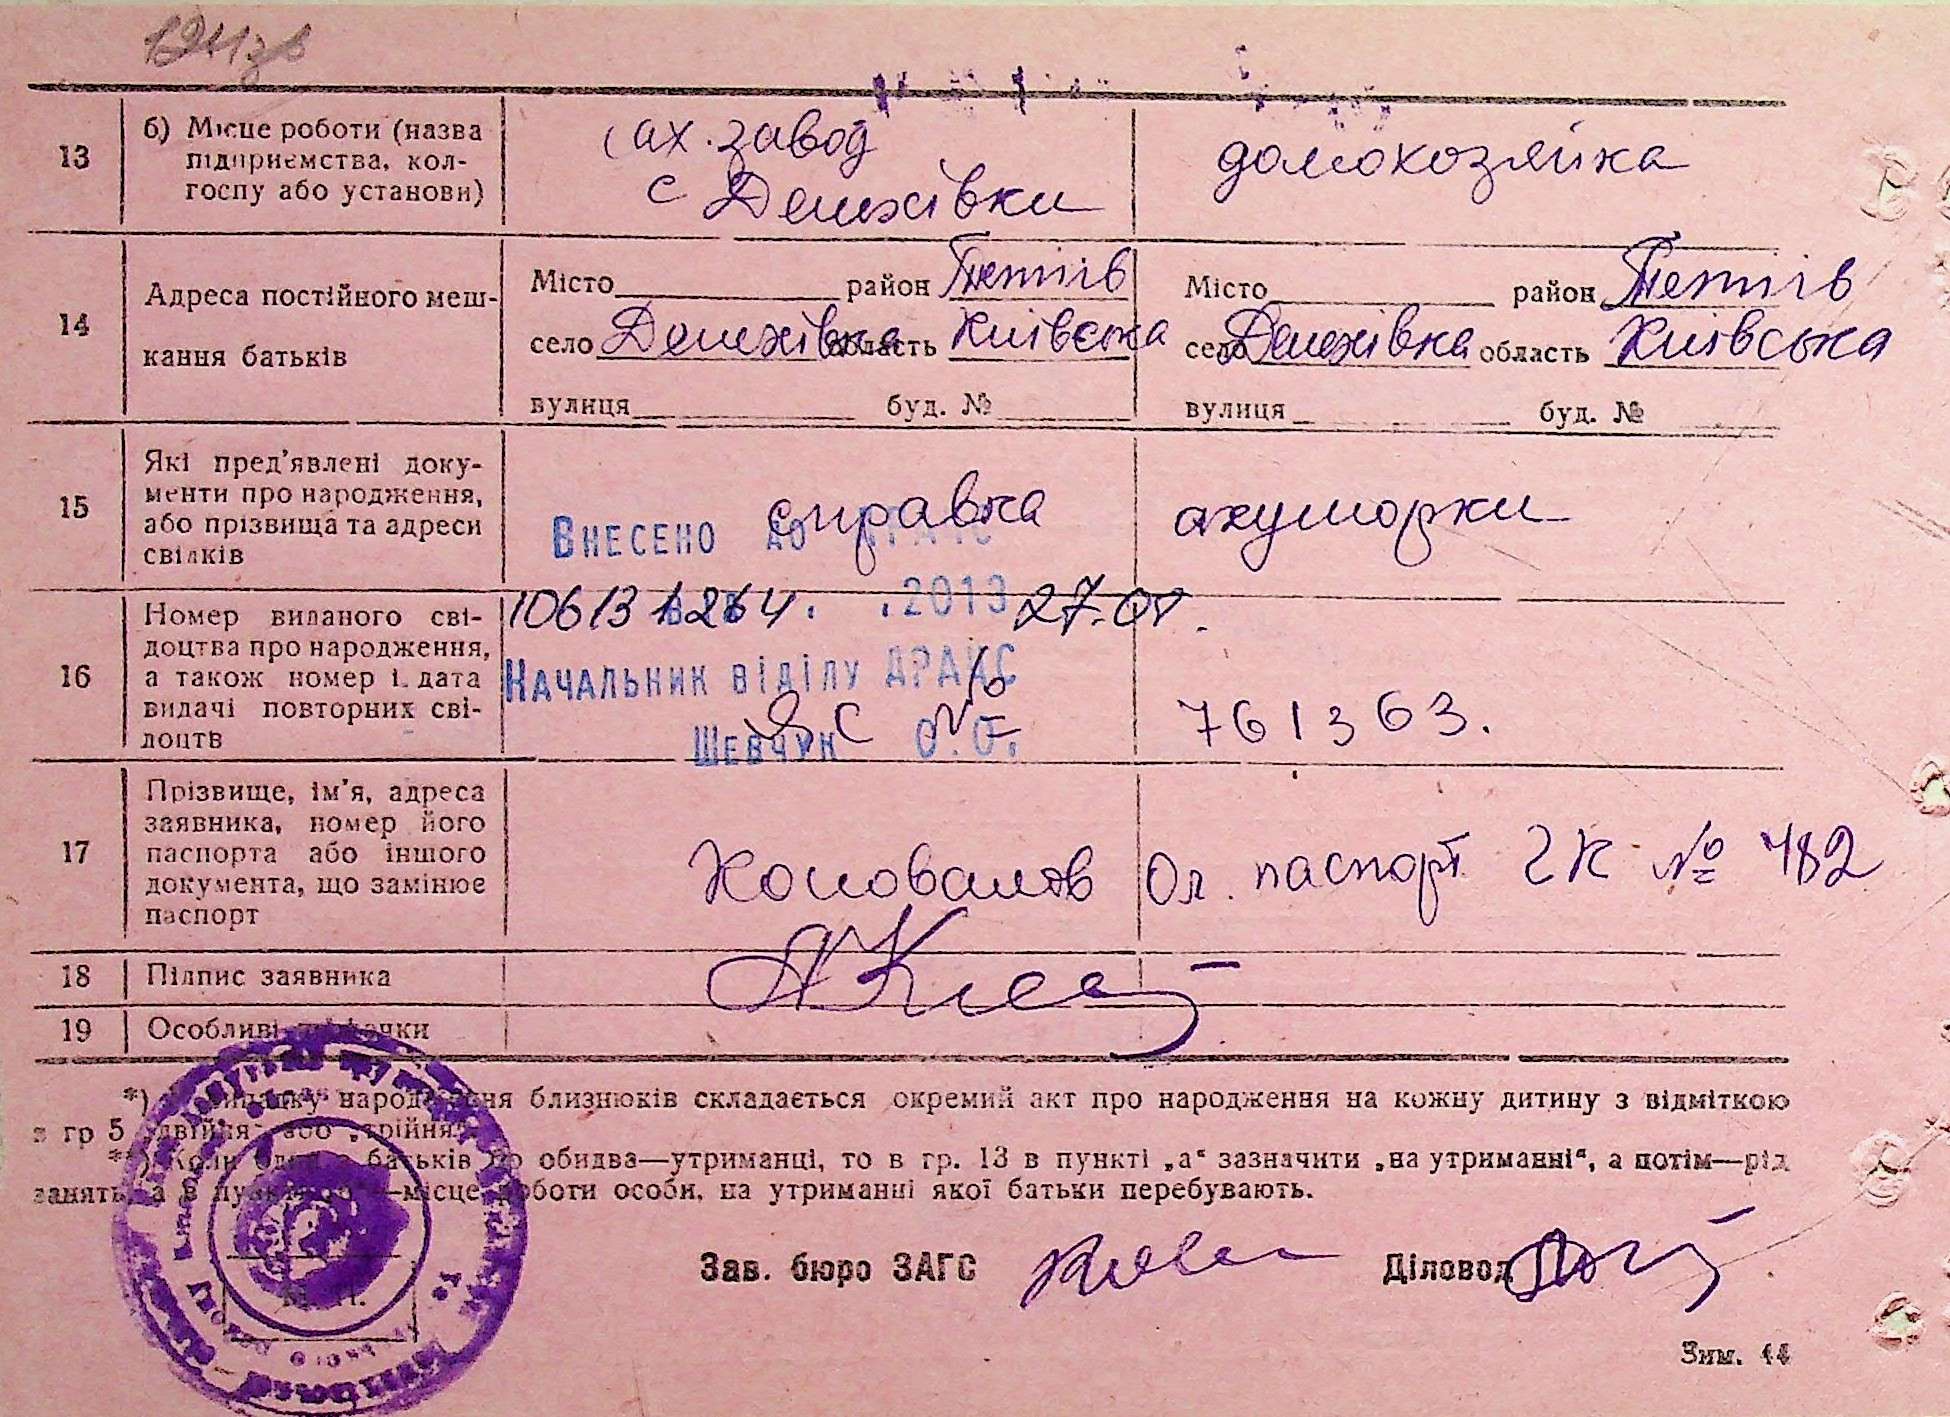 13
б) Місце роботи (назва підприємства, колгоспу або установи)
сах. завод
с Денхівки
домохозяйка
14
Адреса постійного мешкання батьків
Місто район Тетіїв
село Денхівка область Київська
вулиця буд. №
Місто район Тетіїв
село Денхівка область Київська
вулиця буд. №
15
Які пред'явлені документи про народження, або прізвища та адреси свідків
справка акушорки
Внесено до ДРАЦС
16
Номер виданого свідоцтва про народження, а також номер і дата видачі повторних свідоцтв
.2013 27.01.
Начальник відділу ДРАЦС
ЯС № 761363.
Шевчук О.О.
17
Прізвище, ім'я, адреса заявника, номер його паспорта або іншого документа, що замінює паспорт
Коновалов Ол. паспорт ЧК № 482
18
Підпис заявника
19
Особливі
*) випадку народження близнюків складається окремий акт про народження на кожну дитину з відміткою
в гр 5 „двійня“ або „трійня“.
**) Коли один з батьків чи обидва—утриманці, то в гр. 13 в пункті „а“ зазначити „на утриманні“, а потім—рід
занять, а в пункті —місце роботи особи, на утриманні якої батьки перебувають.
Зав. бюро ЗАГС
Діловод
М. П.
Зим. 14